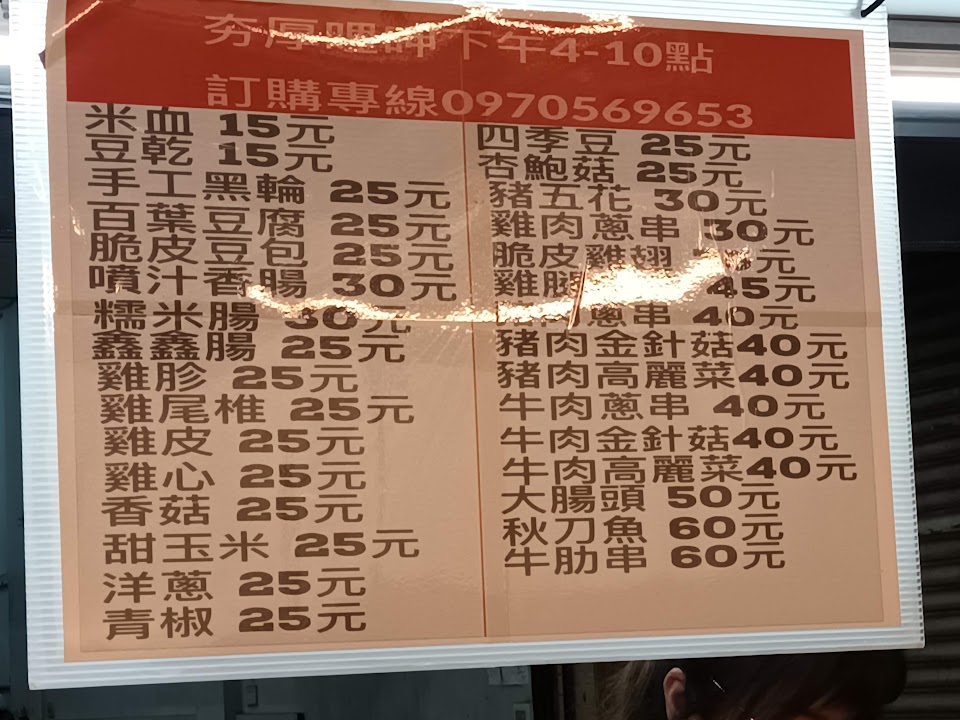 夯厚哩呷下午4-10點
訂購專線0970569653
米血 15元
豆乾 15元
手工黑輪 25元
百葉豆腐 25元
脆皮豆包 25元
噴汁香腸 30元
糯米腸 30元
鑫鑫腸 25元
雞胗 25元
雞尾椎 25元
雞皮 25元
雞心 25元
香菇 25元
甜玉米 25元
洋蔥 25元
青椒 25元
四季豆 25元
杏鮑菇 25元
豬五花 30元
雞肉蔥串 30元
脆皮雞翅 元
雞腿 45元
肉蔥串 40元
豬肉金針菇40元
豬肉高麗菜40元
牛肉蔥串 40元
牛肉金針菇40元
牛肉高麗菜40元
大腸頭 50元
秋刀魚 60元
牛肋串 60元